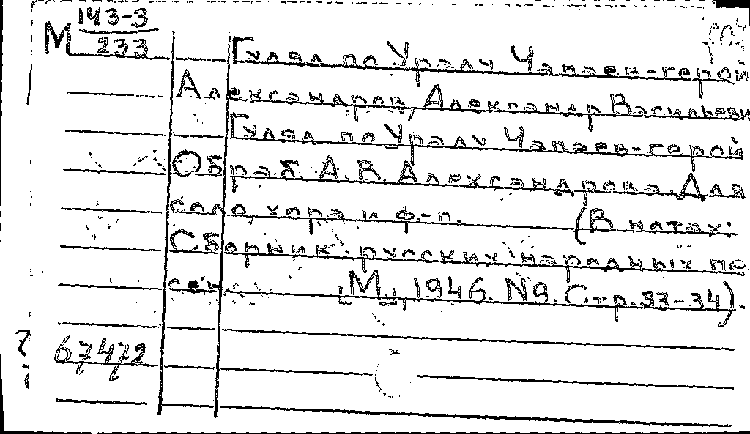 М 143-3
233
Гулял по Уралу Чапаев-герой
Александров, Александр Васильеви
Гулял по Уралу Чапаев-герой
Обраб. А.В. Александрова. Для
соло, хора и ф.-п. (В нотах:
Сборник русских народных пе
сен. [М], 1946. №9. Стр. 33-34).
67472